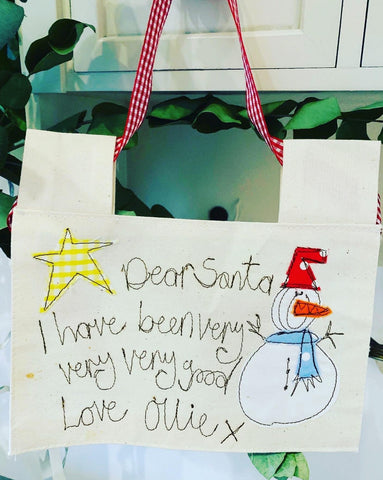 Dear Santa
I have been very
very very good
Love Ollie x